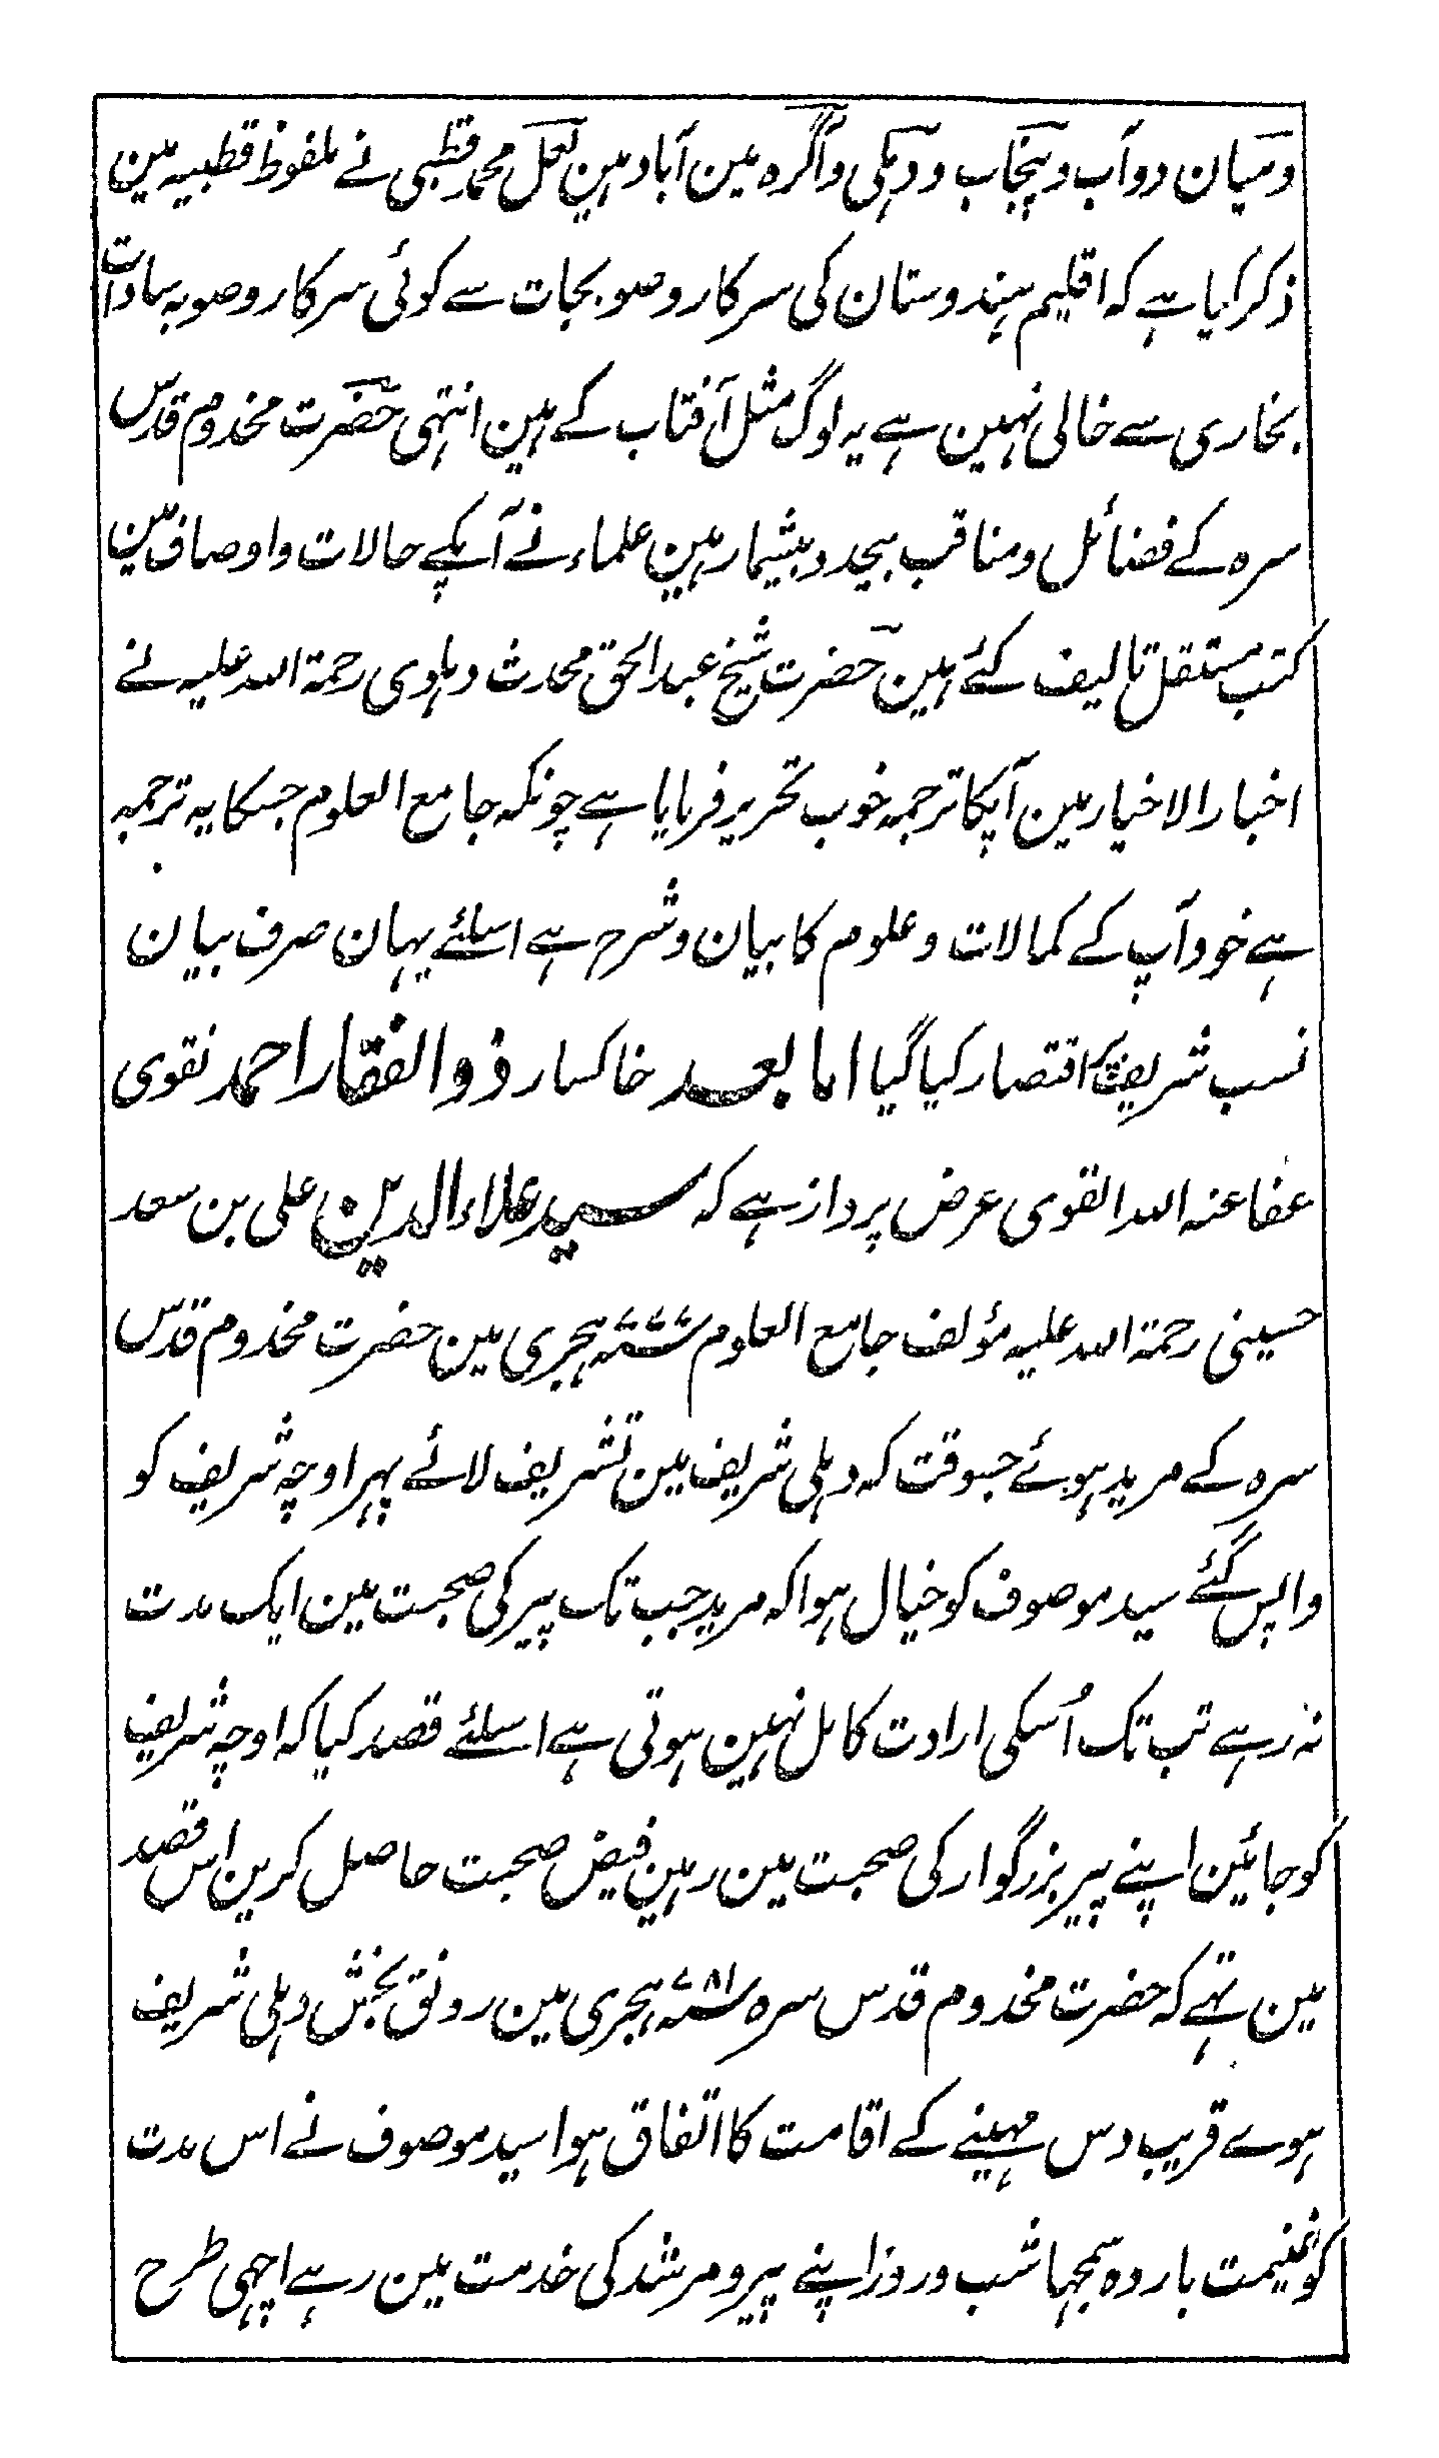 ومیان دوآب وپنجاب و دہلی وآگرہ مین آباد ہین لعل محمد قطبی نے ملفوظ قطبیہ مین
ذکر کیا ہے کہ اقلیم ہندوستان کی سرکار وصوبجات سے کوئی سرکار وصوبہ سادات
بخاری سے خالی نہین ہے یہ لوگ مثل آفتاب کے ہین انتہی حضرت مخدوم قدس
سرہ کے فضائل ومناقب بیحد و بیشمار ہین علماء نے آپکے حالات واوصاف مین
کتب مستقل تالیف کئے ہین حضرت شیخ عبدالحق محدث دہلوی رحمة اللہ علیہ نے
اخبار الاخیار مین آپکا ترجمہ خوب تحریر فرمایا ہے چونکہ جامع العلوم جسکا یہ ترجمہ
ہے خود آپ کے کمالات وعلوم کا بیان وشرح ہے اسلئے یہان صرف بیان
نسب شریف پر اقتصار کیا گیا اما بعد خاکسار ذوالفقار احمد نقوی
عفا عنہ اللہ القوی عرض پرداز ہے کہ سید علاءالدین علی بن سعد
حسینی رحمة اللہ علیہ مؤلف جامع العلوم ۷۷۷ ہجری مین حضرت مخدوم قدس
سرہ کے مرید ہوئے جسوقت کہ دہلی شریف مین تشریف لائے پہر اوچہ شریف کو
واپس گئے سید موصوف کو خیال ہوا کہ مرید جب تک پیر کی صحبت مین ایک مدت
نہ رہے تب تک اُسکی ارادت کامل نہین ہوتی ہے اسلئے قصد کیا کہ اوچہ شریف
کو جائین اپنے پیر بزرگوار کی صحبت مین رہین فیض صحبت حاصل کرین اس قصد
مین تہے کہ حضرت مخدوم قدس سرہ ۷۸۱ ہجری مین رونق بخش دہلی شریف
ہوے قریب دس مہینے کے اقامت کا اتفاق ہوا سید موصوف نے اس مدت
کو غنیمت باردہ سمجہا شب وروز اپنے پیر ومرشد کی خدمت مین رہے اچہی طرح